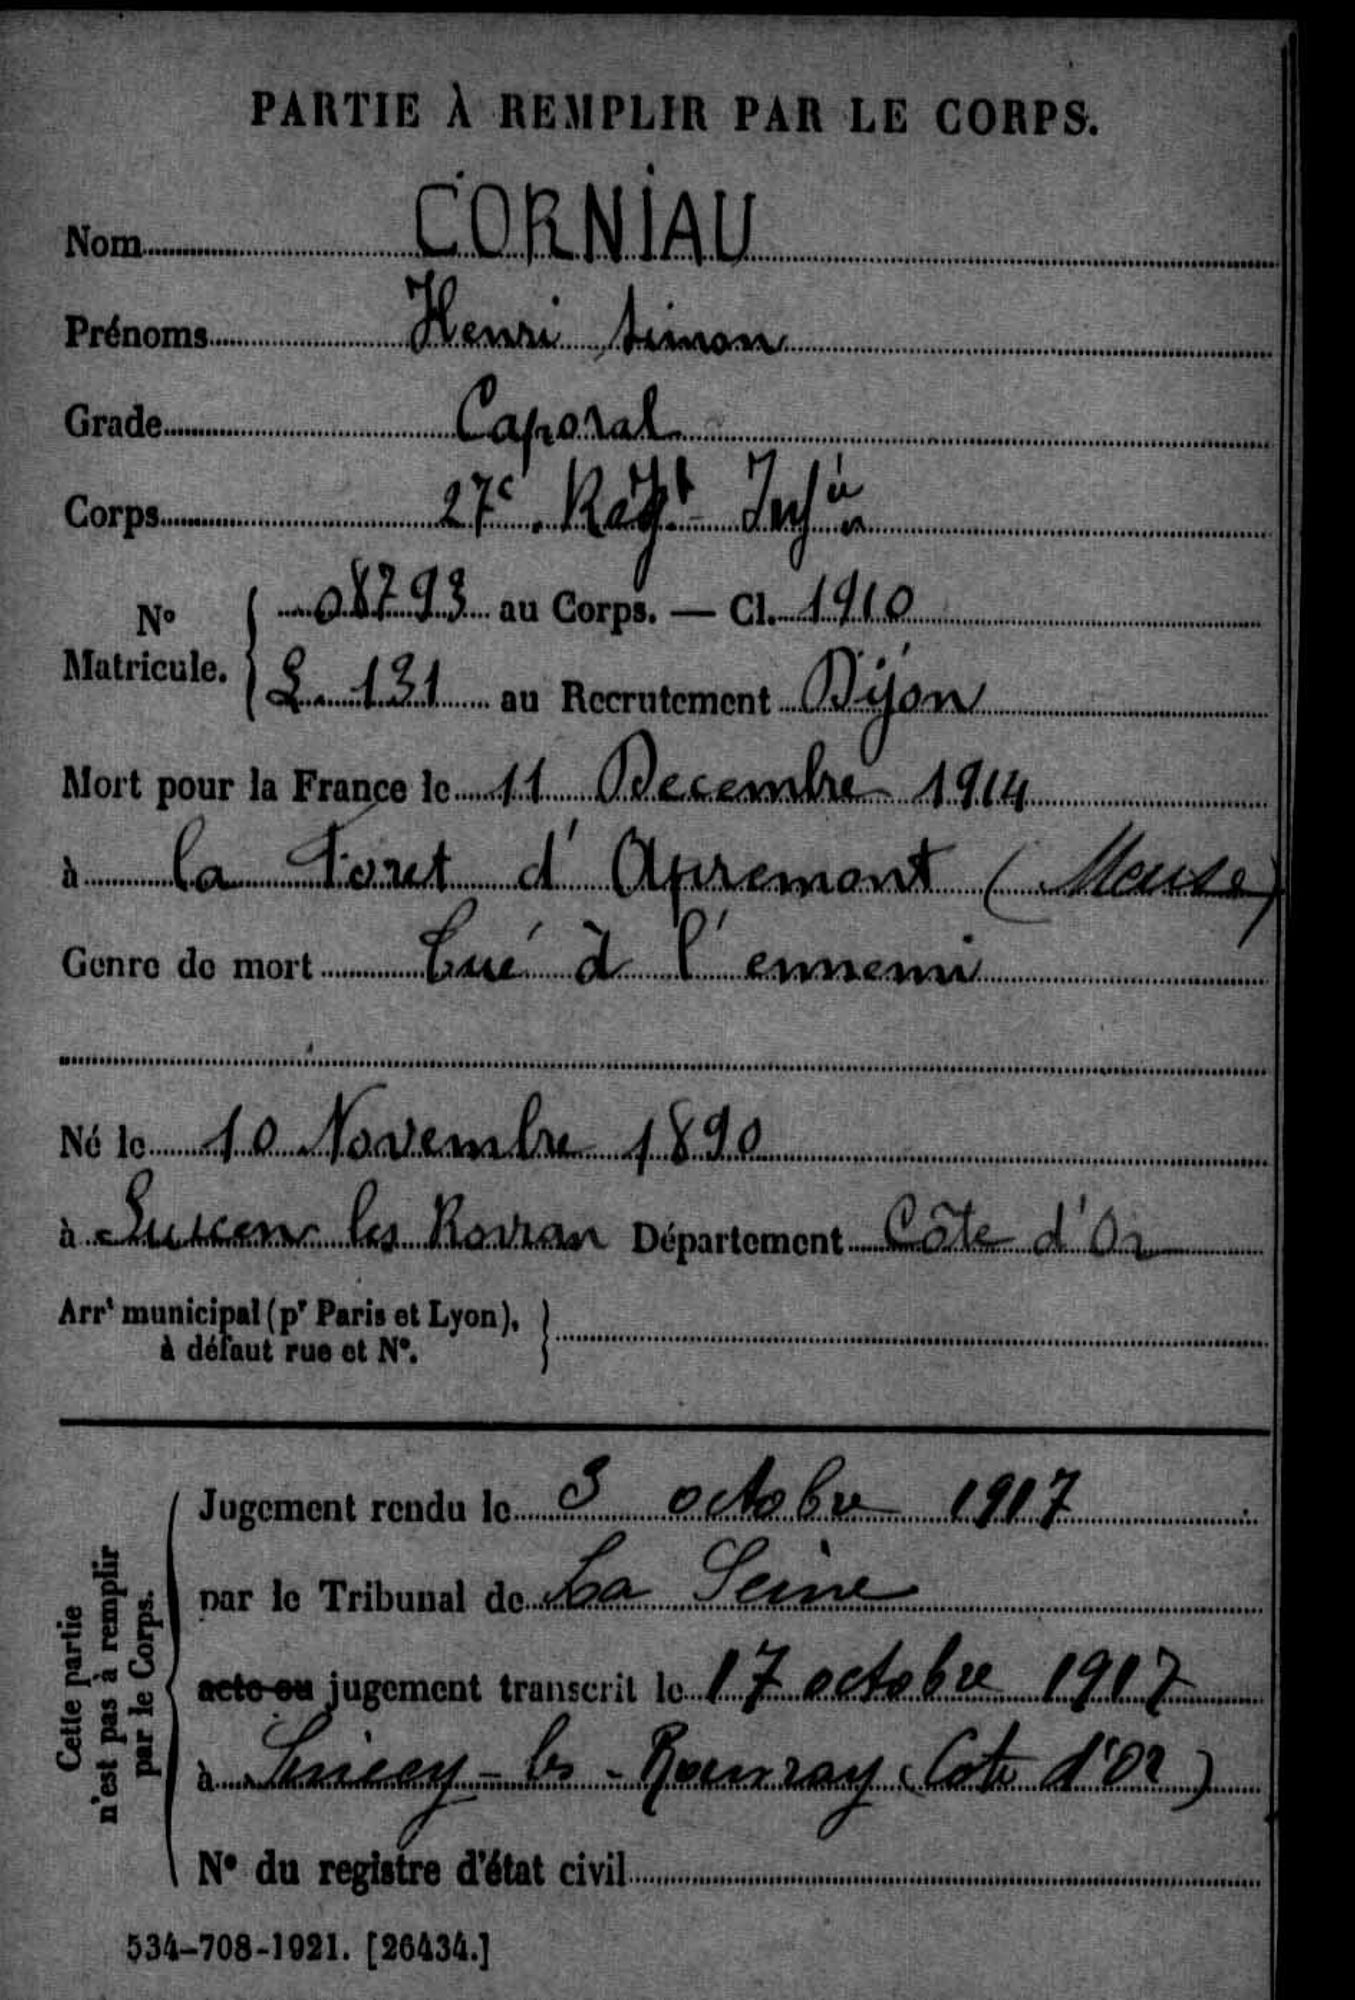 PARTIE À REMPLIR PAR LE CORPS.
Nom CORNIAU
Prénoms Henri Simon
Grade Caporal
Corps 27e Régt Infie
No Matricule. 08793 au Corps. — Cl. 1910
131 au Recrutement Dijon
Mort pour la France le 11 Decembre 1914
à la Foret d'Apremont (Meuse)
Genre de mort Tué à l'ennemi
Né le 10 Novembre 1890
à les Département Côte d'Or
Arrt municipal (pr Paris et Lyon),
à défaut rue et No.
Cette partie
n'est pas à remplir
par le Corps.
Jugement rendu le 3 octobre 1917
par le Tribunal de La Seine
acte ou jugement transcrit le 17 octobre 1917
à les - Rouvray (Cote d'Or)
No du registre d'état civil
534-708-1921. [26434.]